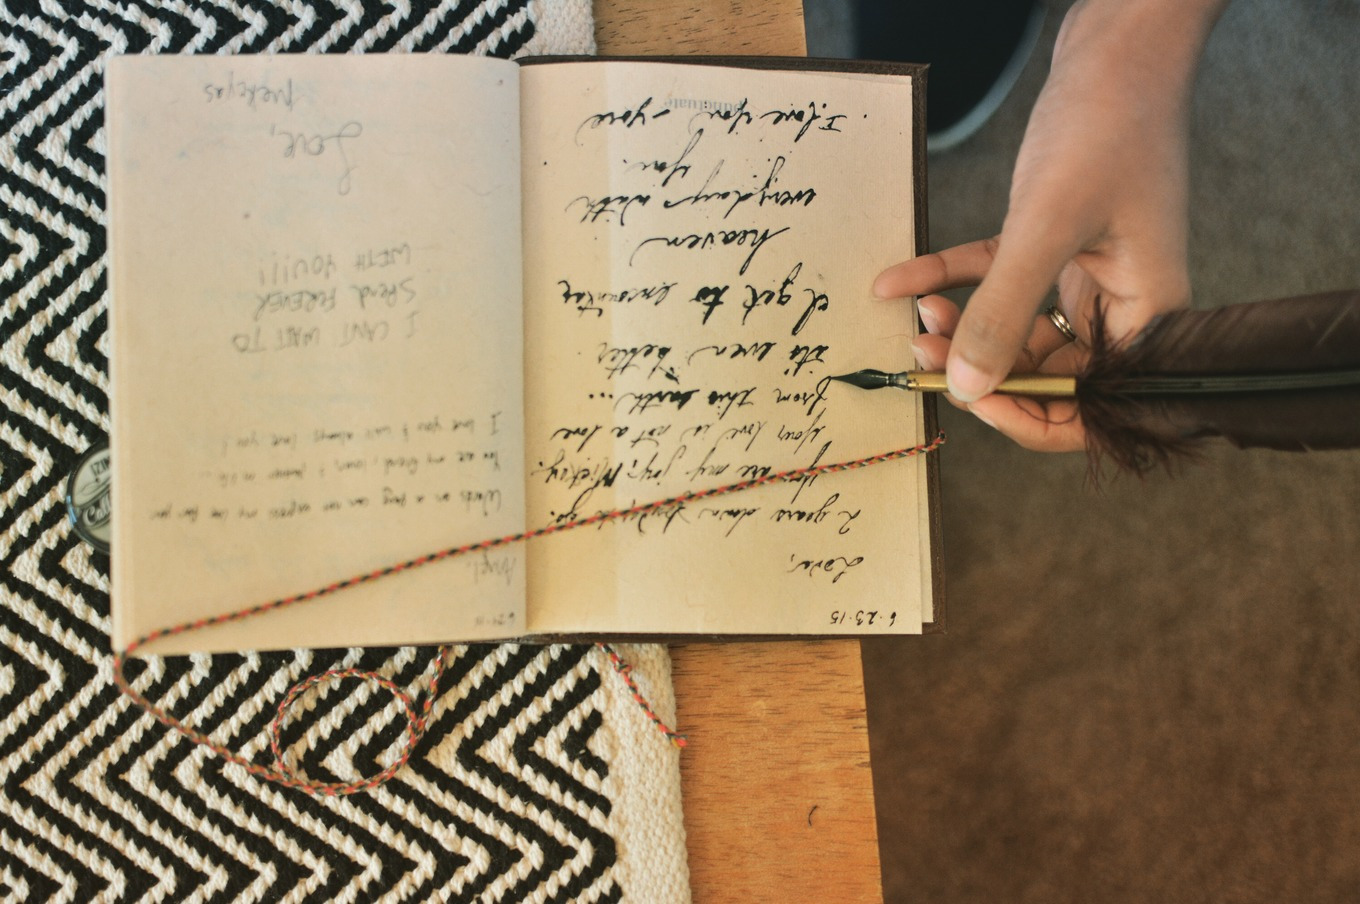 6·23·15
Love,
2 years down to go.
You are my joy, Mickey.
Your love is not a love
from this earth...
its even better.
I get to encounter
heaven
everyday with
you.
I love you
Angel,
Words on a page can express my love for you
You are my friend, lover, & partner in life...
I love you & will always love you!
I CANT WAIT TO
SPEND FOREVER
WITH YOU!!!
Love,